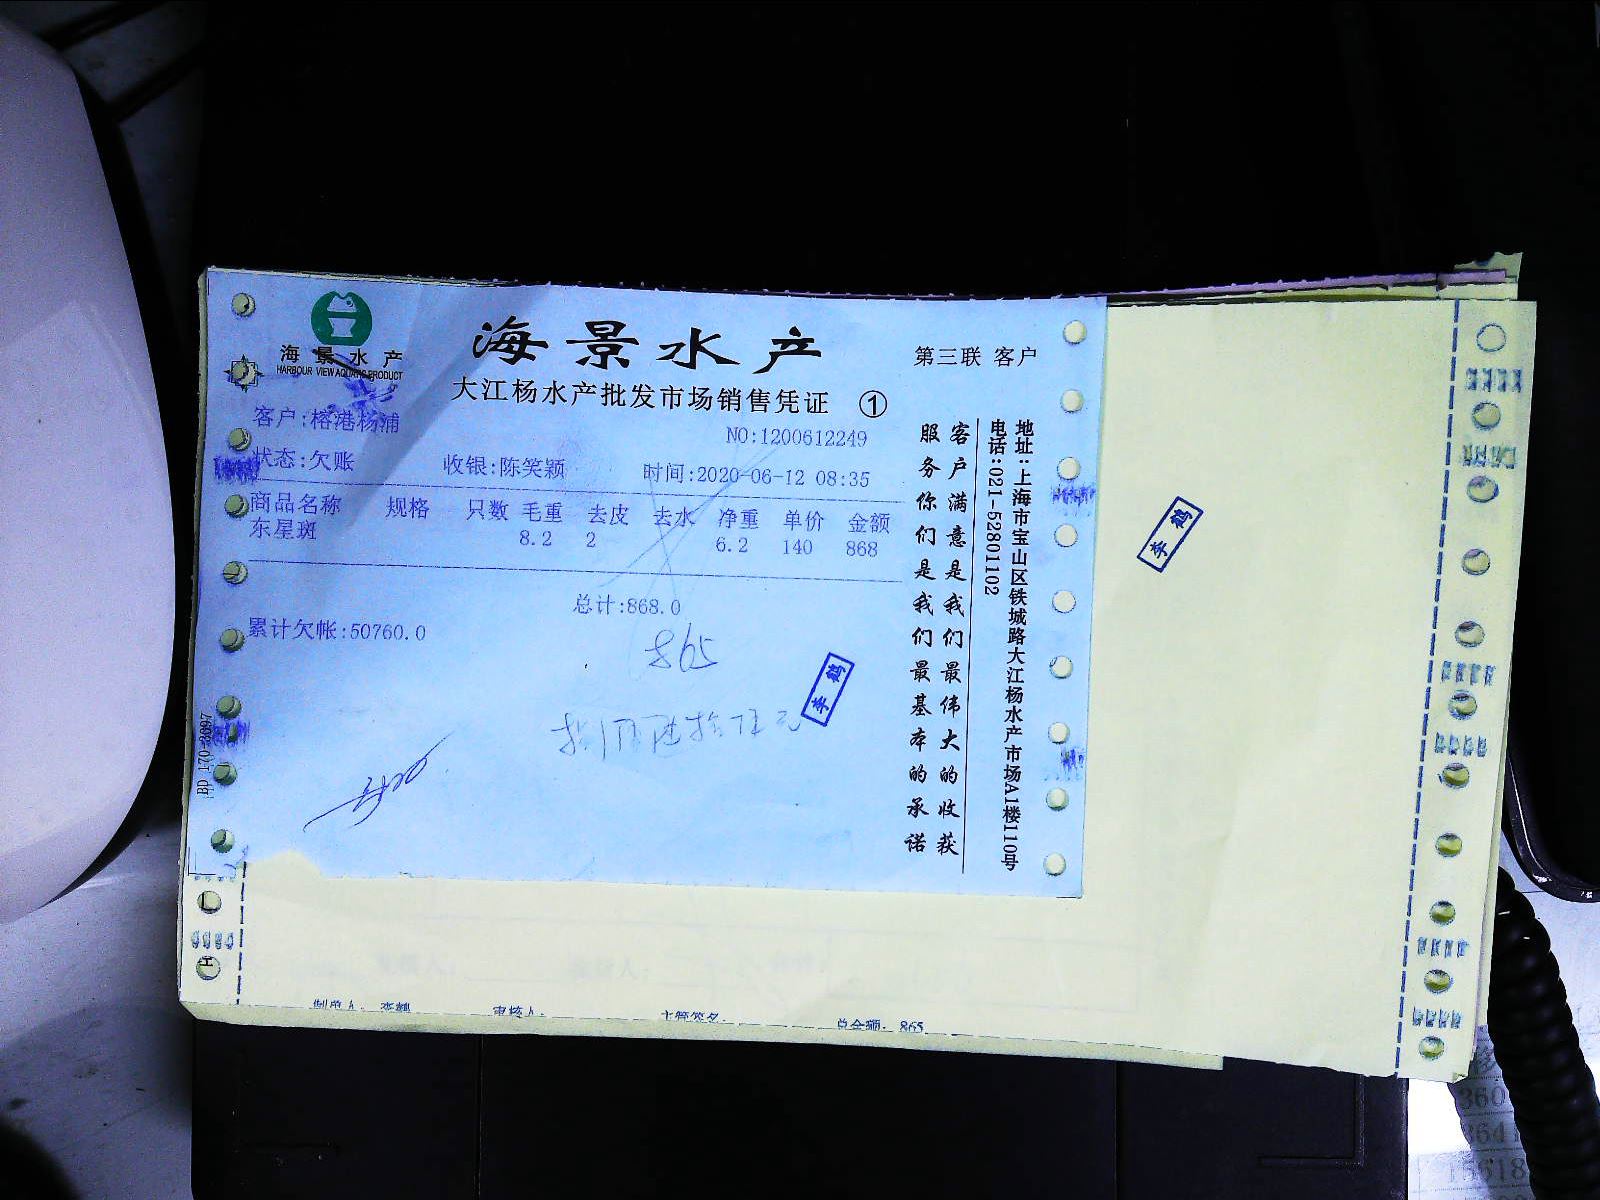 海景水产
HARBOUR VIEW AQUATIC PRODUCT
海景水产
大江杨水产批发市场销售凭证 ①
第三联 客户
客户:榕港杨浦
NO:1200612249
状态:欠账 收银:陈笑颖 时间:2020-06-12 08:35
商品名称 规格 只数 毛重 去皮 去水 净重 单价 金额
东星斑 8.2 2 6.2 140 868
总计:868.0
累计欠帐:50760.0
865
李鹤
客户满意是我们最伟大的收获
服务你们是我们最基本的承诺
地址:上海市宝山区铁城路大江杨水产市场A1楼110号
电话:021-52801102
BD 170-3097
李鹤
制单人: 李鹤 审核人: 主管签名: 总金额: 865